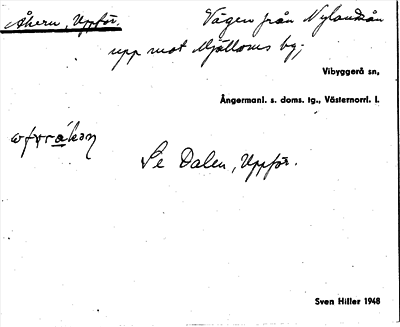 Åkern, Uppför. Vägen från Nylandsån
upp mot Mjällosus bg;
Vibyggerå sn,
Ångermanl. s. doms. tg., Västernorrl. l.
Se Dalen, Uppför.
Sven Hiller 1948